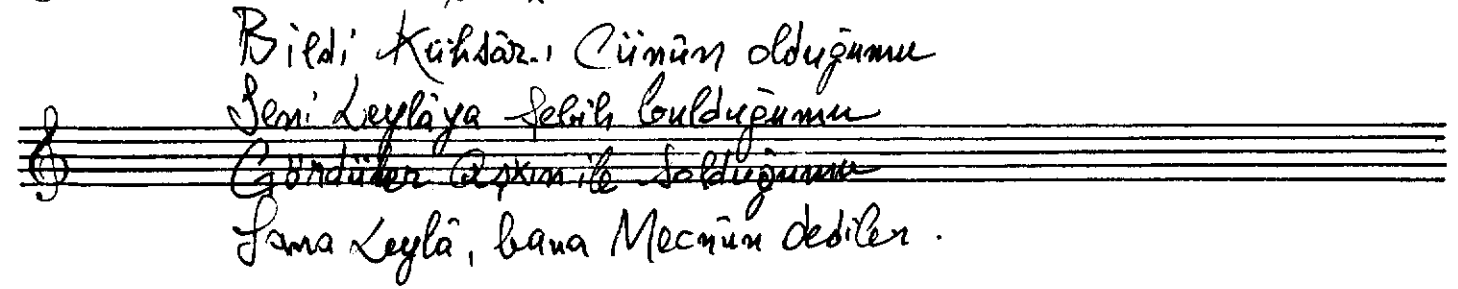 Bildi Kühsâr-ı Cünûn olduğumu
Seni Leylâya Şebih bulduğumu
Gördüler aşkın ile solduğumu
Sana Leylâ, bana Mecnûn dediler.